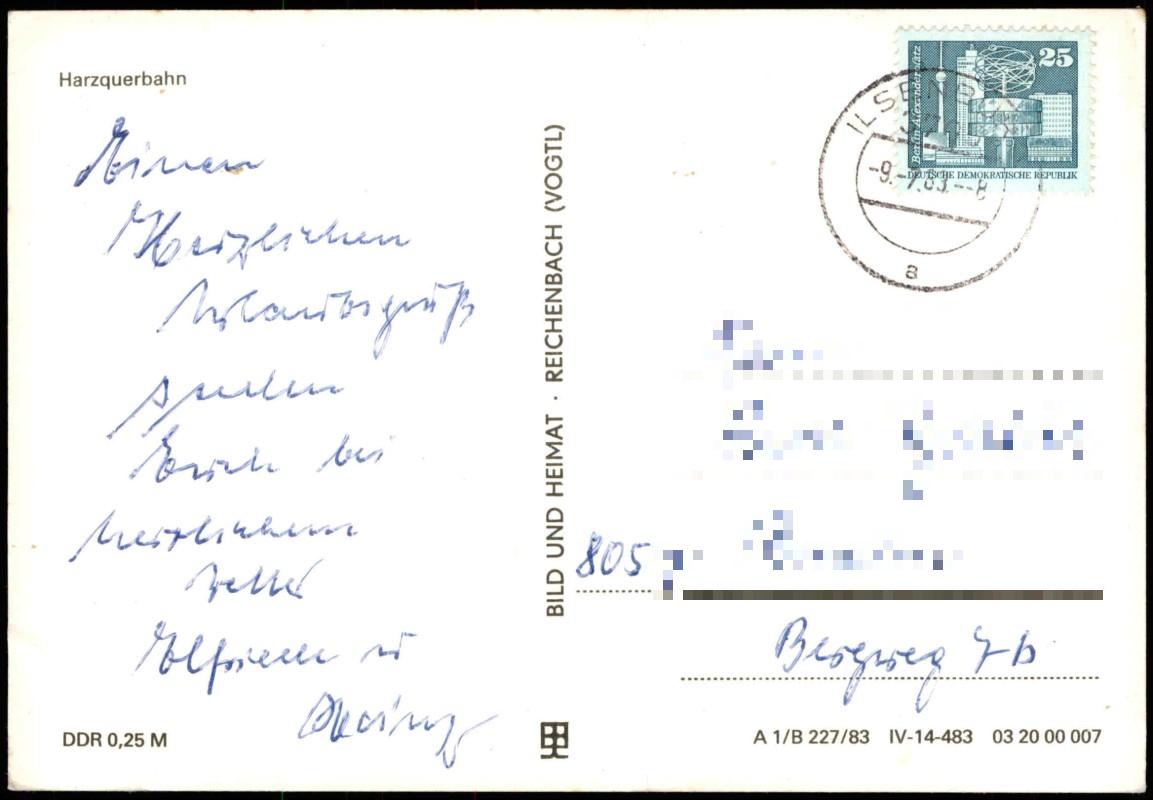 Harzquerbahn
Einen
Herzlichen
Urlaubsgruß
senden
Euch bei
herrlichem
Wetter
Elfriede u
Heinz
BILD UND HEIMAT · REICHENBACH (VOGTL)
DDR 0,25 M
25
Berlin-Alexanderplatz
DEUTSCHE DEMOKRATISCHE REPUBLIK
ILSENB
-9.-7.83.--8
a
805
Bergweg 7b
A 1/B 227/83 IV-14-483 03 20 00 007